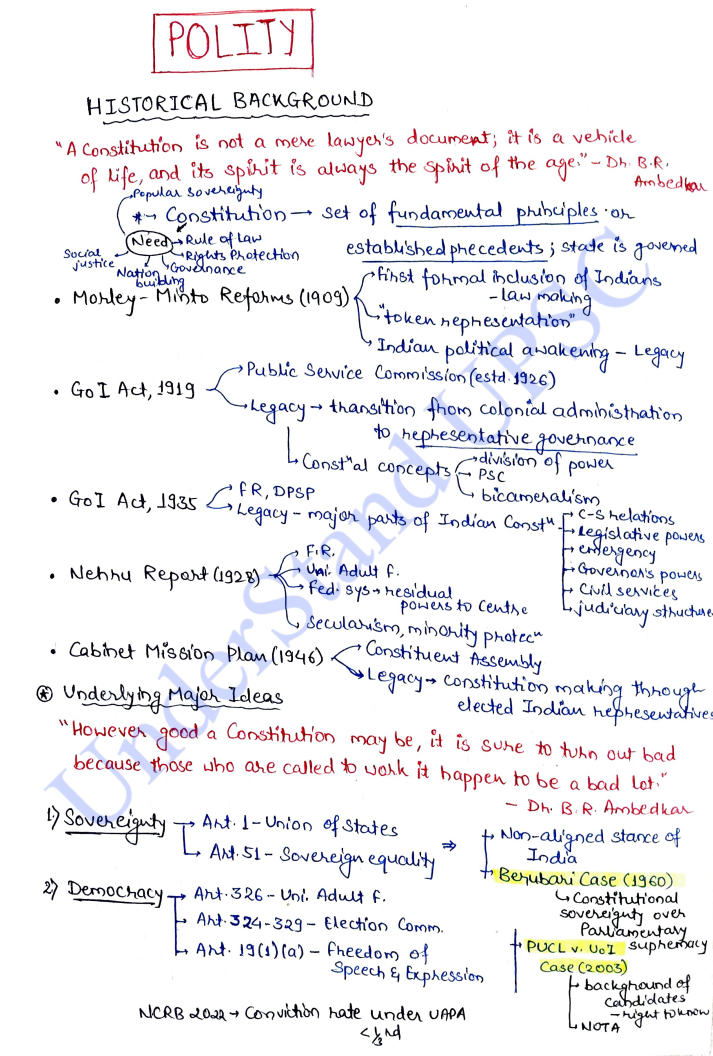 POLITY
HISTORICAL BACKGROUND
"A Constitution is not a mere lawyer's document; it is a vehicle
of life, and its spirit is always the spirit of the age." - Dr. B.R.
Ambedkar
Popular sovereignty
*→ Constitution → set of fundamental principles or
established precedents; state is governed
Need → Rule of law
Rights Protection
Governance
Nation building
Social justice
• Morley-Minto Reforms (1909)
→ First formal inclusion of Indians
- law making
→ "token representation"
→ Indian political awakening - Legacy
• GoI Act, 1919
→ Public Service Commission (estd. 1926)
→ Legacy → transition from colonial administration
to representative governance
↳ Constⁿal concepts
→ division of power
→ PSC
→ bicameralism
• GoI Act, 1935
→ FR, DPSP
→ Legacy - major parts of Indian Constⁿ
→ C-S relations
→ Legislative powers
→ emergency
→ Governor's powers
→ Civil services
→ judiciary structure
• Nehru Report (1928)
→ F.R.
→ Uni. Adult f.
→ Fed. sys → residual
powers to Centre
→ secularism, minority protecⁿ
• Cabinet Mission Plan (1946)
→ Constituent Assembly
→ Legacy → constitution making through
elected Indian representatives
⊛ Underlying Major Ideas
"However good a Constitution may be, it is sure to turn out bad
because those who are called to work it happen to be a bad lot."
- Dr. B.R. Ambedkar
1) Sovereignty → Art. 1 - Union of States
↳ Art. 51 - Sovereign equality ⇒
→ Non-aligned stance of
India
→ Berubari Case (1960)
↳ Constitutional
sovereignty over
Parliamentary
supremacy
2) Democracy → Art. 326 - Uni. Adult f.
→ Art. 324-329 - Election Comm.
→ Art. 19(1)(a) - Freedom of
Speech & Expression
→ PUCL v. UoI
Case (2003)
→ background of
candidates
- right to know
→ NOTA
NCRB 2022 → Conviction rate under UAPA
< 1/3 rd
UnderStand UPSC